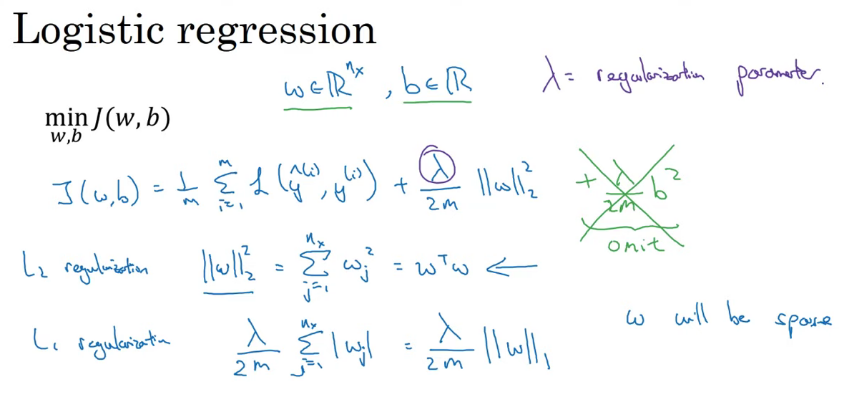 Logistic regression
w ∈ ℝ^{n_x} , b ∈ ℝ
λ = regularization parameter.
min_{w,b} J(w, b)
J(w,b) = 1/m ∑_{i=1}^{m} ℒ(ŷ^{(i)}, y^{(i)}) + λ/2m ||w||_2^2
+ λ/2m b^2
omit
L_2 regularization ||w||_2^2 = ∑_{j=1}^{n_x} w_j^2 = w^T w ←
w will be sparse
L_1 regularization λ/2m ∑_{j=1}^{n_x} |w_j| = λ/2m ||w||_1